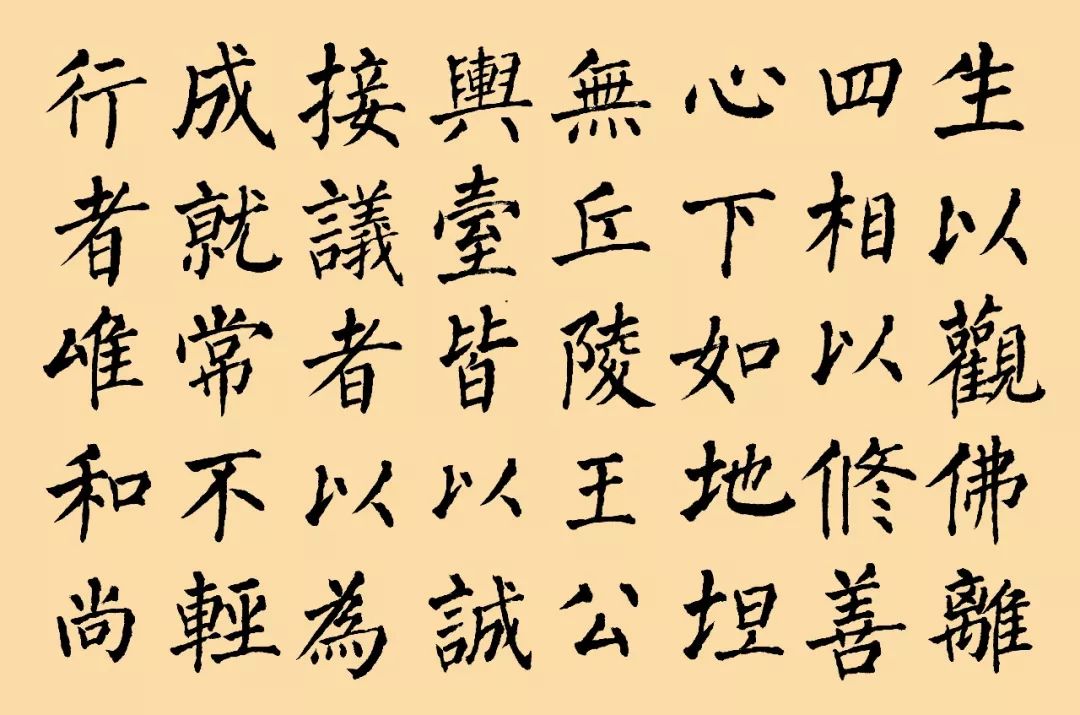 生以觀佛離
四相以修善
心下如地坦
無丘陵王公
輿臺皆以誠
接議者以為
成就常不輕
行者唯和尚